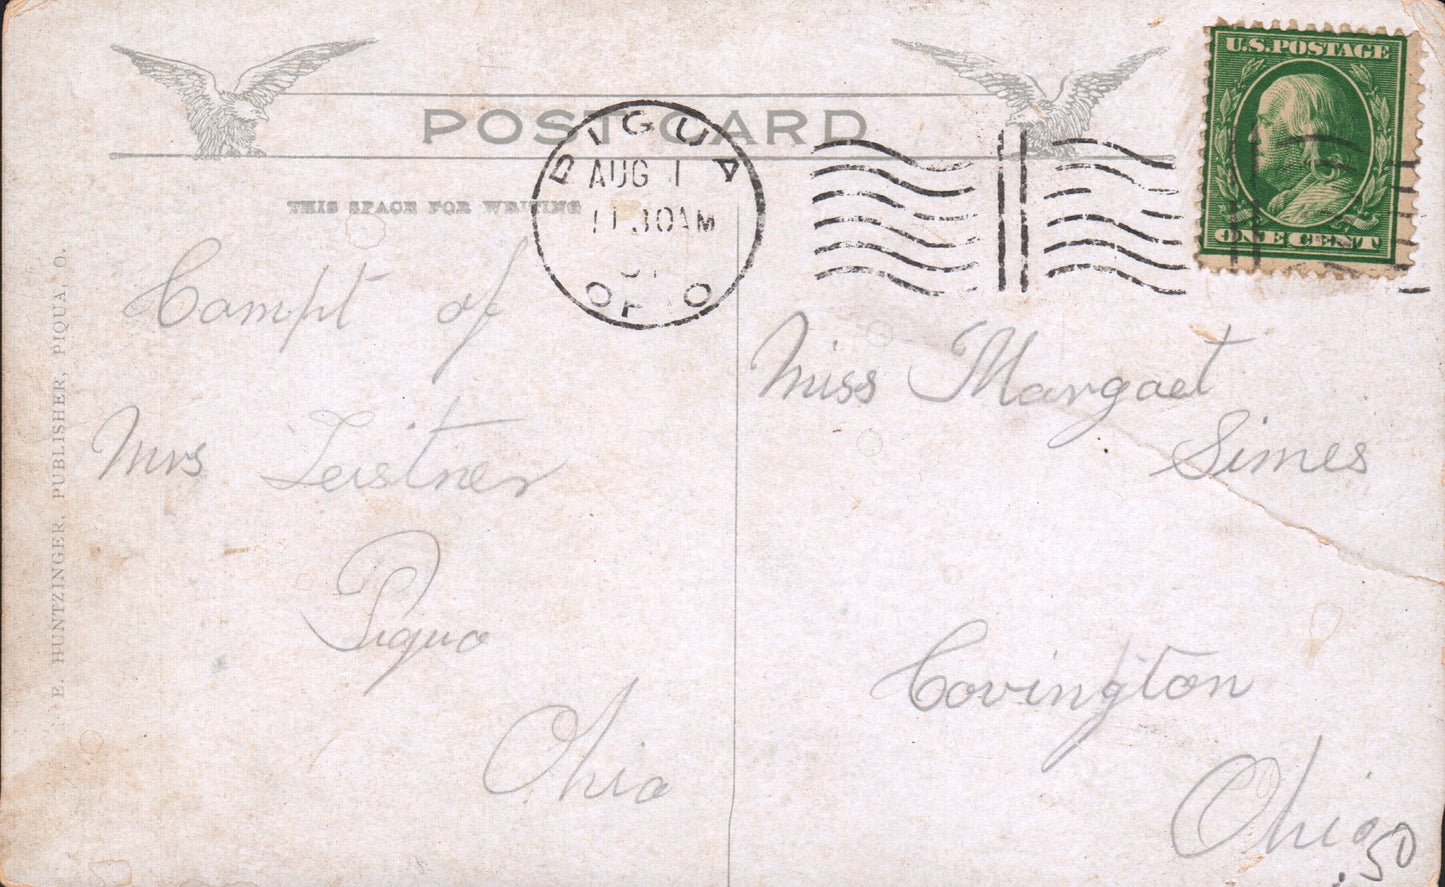 POST CARD
U.S. POSTAGE
ONE CENT
PIQUA
AUG 1
11 30 AM
OHIO
THIS SPACE FOR WRITING
Compt of
Mrs Leistner
Piqua
Ohio
Miss Margaet
Simes
Covington
Ohio
.50
E. HUNTZINGER, PUBLISHER, PIQUA, O.